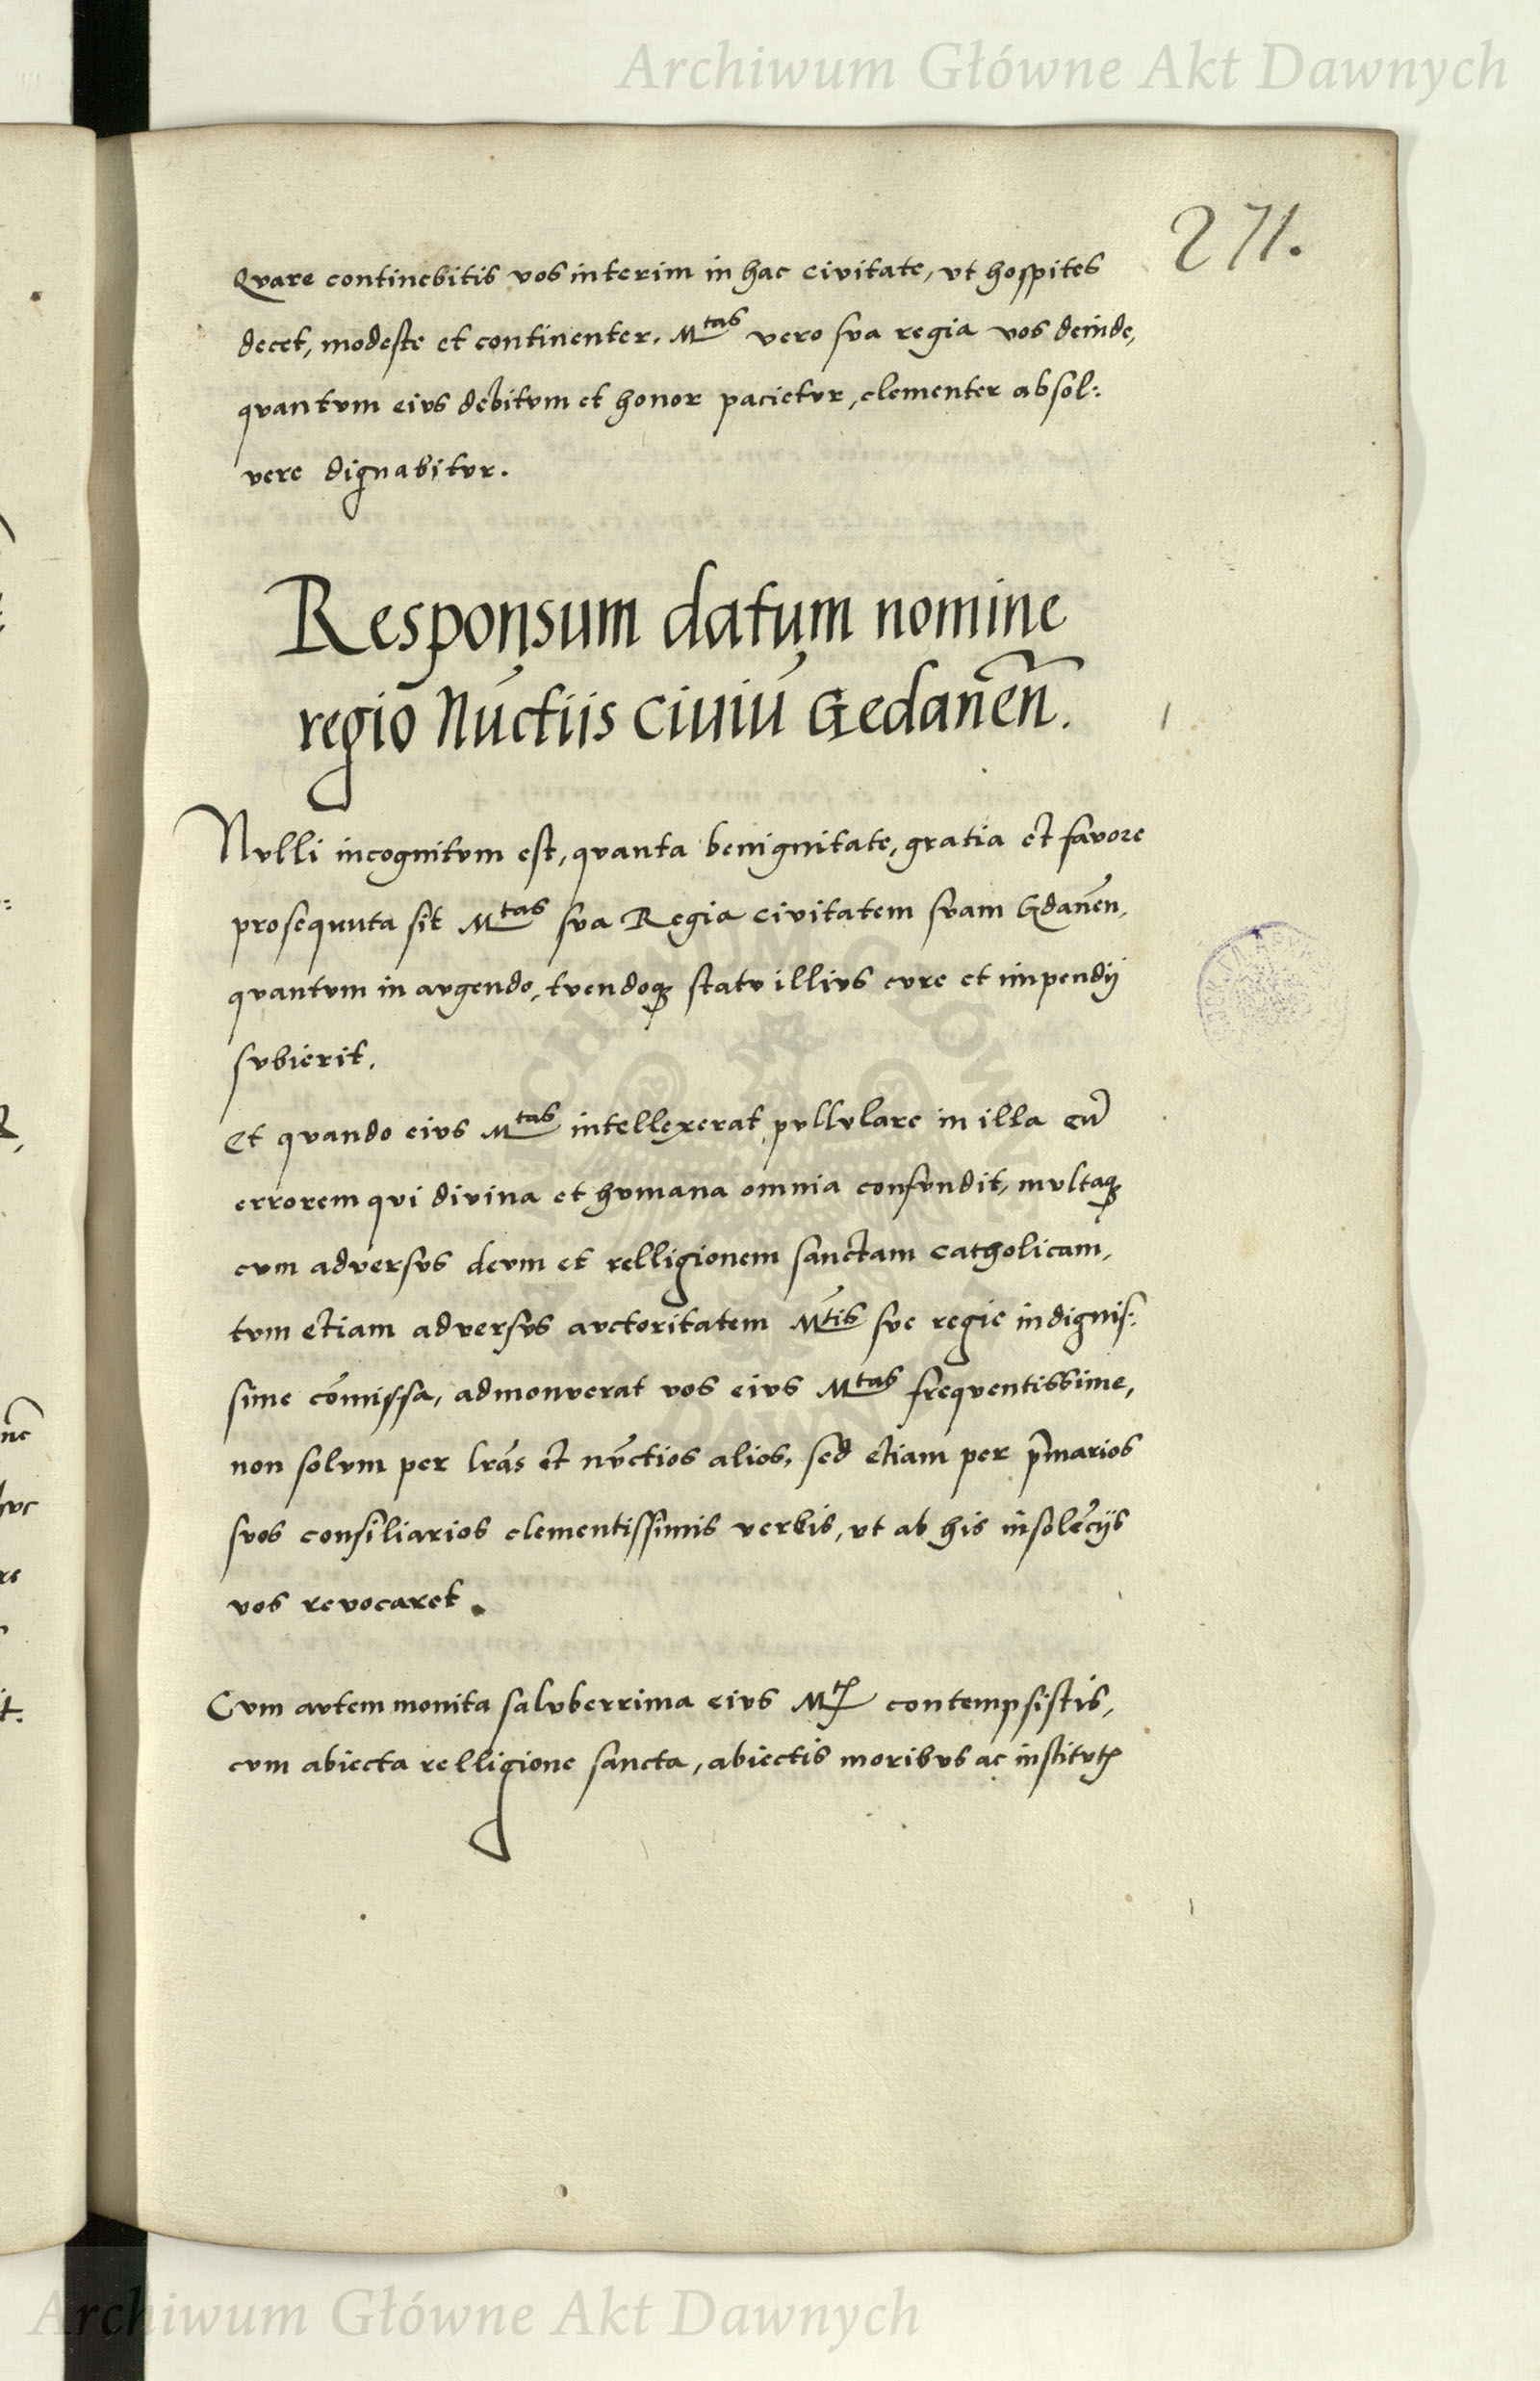 Archiwum Główne Akt Dawnych
271.
Qvare continebitis vos interim in hac civitate, vt hospites
decet, modeste et continenter. Mtas vero sva regia vos deinde,
qvantvm eivs debitvm et honor pacietvr, clementer absol:
vere dignabitvr.
Responsum datum nomine
regio Nūctiis Ciuiū Gedanēn.
Nvlli incognitvm est, qvanta benignitate, gratia et favore
prosequuta sit Mtas sva Regia civitatem svam Gdanēn,
qvantvm in avgendo, tvendoqꝫ statv illivs cvre et impendij
svbierit.
Et qvando eivs Mtas intellexerat pvllvlare in illa eū
errorem qvi divina et hvmana omnia confvndit, mvltaqꝫ
cvm adversvs devm et relligionem sanctam catholicam,
tvm etiam adversvs avctoritatem Mtis sve regie indignis:
sime cōmissa, admonverat vos eivs Mtas freqventissime,
non solvm per lrās et nv̄ctios alios, sed etiam per p̄marios
svos consiliarios clementissimis verbis, vt ab his insolēcijs
vos revocaret.
Cvm avtem monita salvberrima eivs Mtꝭ contempsistis,
cvm abiecta relligione sancta, abiectis moribvs ac institvtꝭ
ARCHIWUM GŁÓWNE
AKT DAWNYCH
Archiwum Główne Akt Dawnych